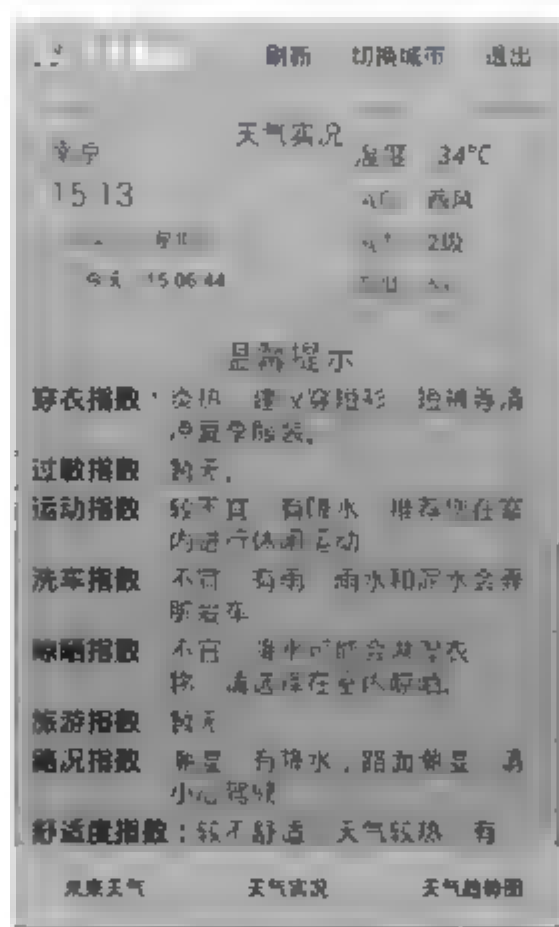 刷新 切换城市 退出
天气实况
南宁 温度 34°C
15 13 西风
2级
今天 15 06 44
温馨提示
穿衣指数：炎热 建议穿短衫 短裤等清
凉夏季服装。
过敏指数 暂无。
运动指数 较不宜 有降水 推荐您在室
内进行休闲运动
洗车指数 不宜 有雨 雨水和泥水会弄
脏爱车
晾晒指数 不宜 降水可能会淋湿衣
物 请选择在室内晾晒。
旅游指数 暂无
路况指数 潮湿 有降水，路面潮湿 请
小心驾驶
舒适度指数：较不舒适 天气较热 有
未来天气 天气实况 天气趋势图